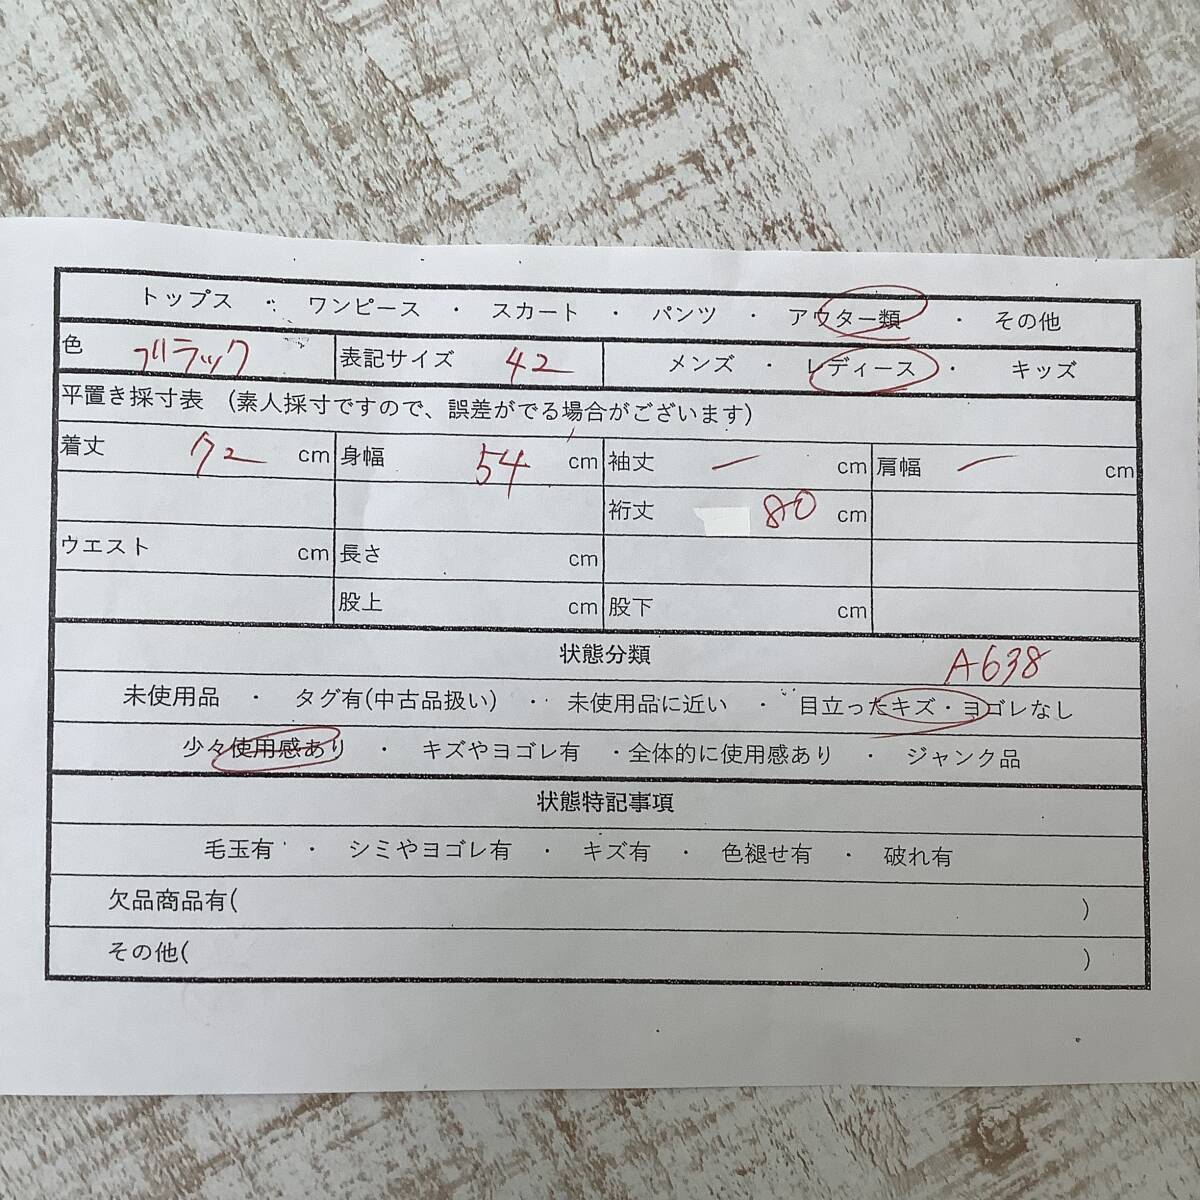 トップス ・ ワンピース ・ スカート ・ パンツ ・ アウター類 ・ その他
色 ブラック 表記サイズ 42 メンズ ・ レディース ・ キッズ
平置き採寸表 (素人採寸ですので、誤差がでる場合がございます)
着丈 72 cm 身幅 54 cm 袖丈 ー cm 肩幅 ー cm
裄丈 80 cm
ウエスト cm 長さ cm
股上 cm 股下 cm
状態分類 A638
未使用品 ・ タグ有(中古品扱い) ・ 未使用品に近い ・ 目立ったキズ・ヨゴレなし
少々使用感あり ・ キズやヨゴレ有 ・全体的に使用感あり ・ ジャンク品
状態特記事項
毛玉有 ・ シミやヨゴレ有 ・ キズ有 ・ 色褪せ有 ・ 破れ有
欠品商品有( )
その他( )